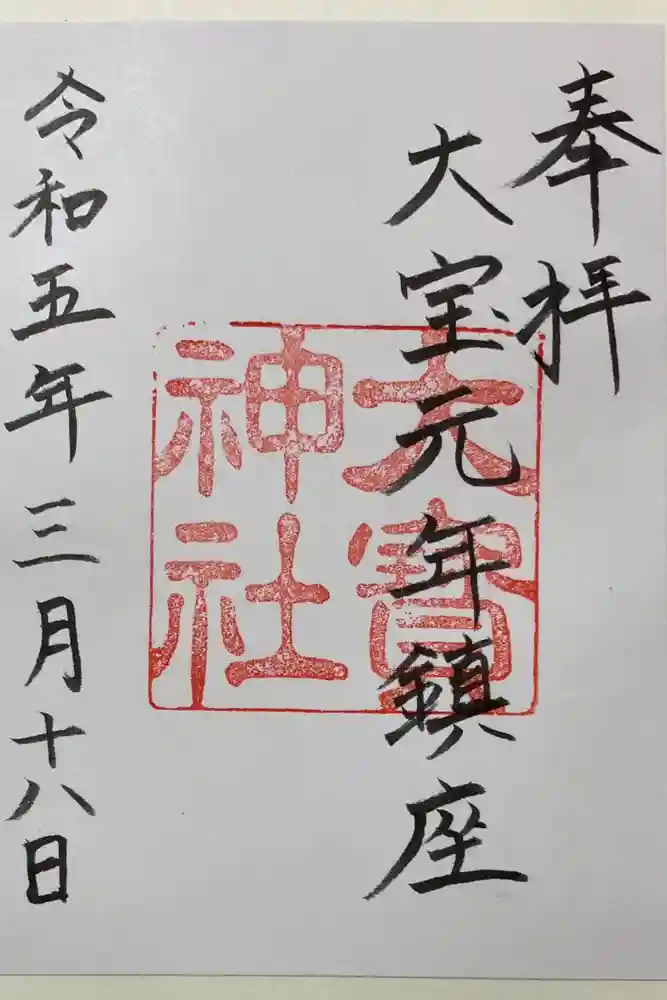 奉拝
大宝元年鎮座
大寳
神社
令和五年三月十八日